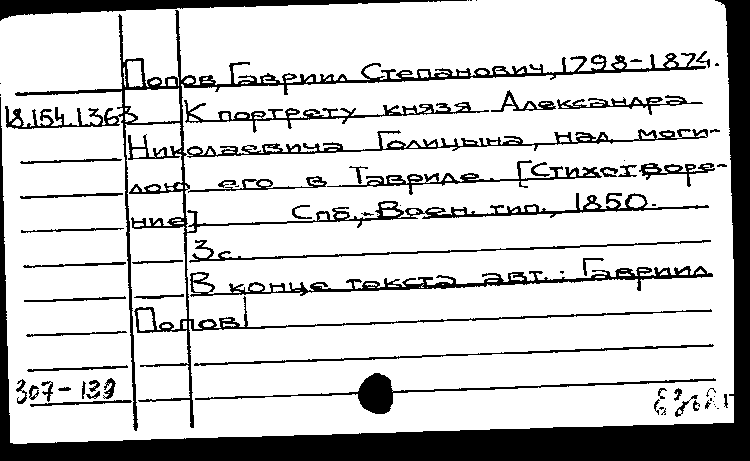 Попов, Гавриил Степанович, 1798-1874.
18.154.1.363 К портрету князя Александра
Николаевича Голицына, над моги-
лою его в Тавриде. [Стихотворе-
ние] Спб., Воен. тип., 1850.
3с.
В конце текста авт.: Гавриил
Попов
307-139